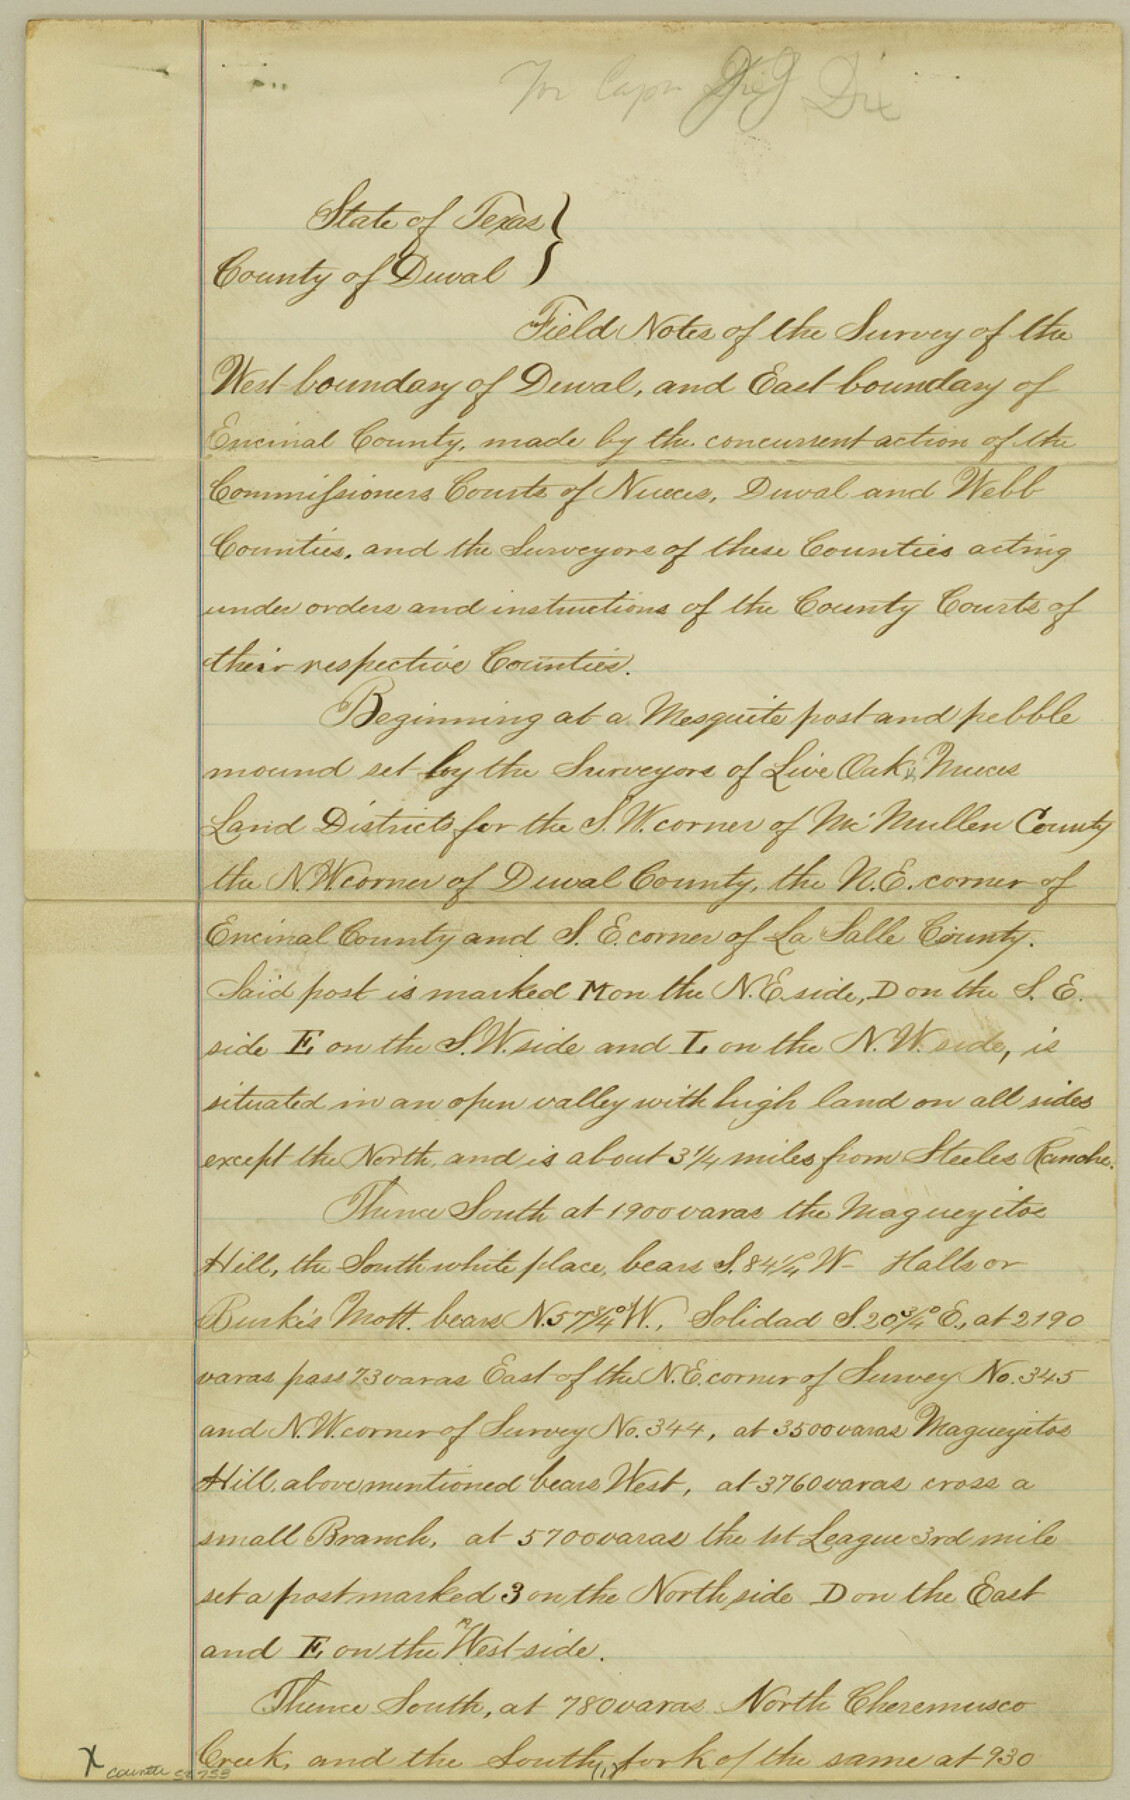 For Capn Dix
State of Texas }
County of Duval }
Field Notes of the Survey of the
West boundary of Duval, and East boundary of
Encinal County, made by the concurrent action of the
Commissioners Courts of Nueces, Duval and Webb
Counties. and the Surveyors of these Counties acting
under orders and instructions of the County Courts of
their respective Counties.
Beginning at a Mesquite post and pebble
mound set by the Surveyors of Live Oak & Nueces
Land Districts for the S.W. corner of Mc Mullen County
the N.W corner of Duval County, the N.E. corner of
Encinal County and S. E. corner of La Salle County.
Said post is marked M on the N.E. side, D on the S. E.
side E on the S.W. side and L on the N.W. side, is
situated in an open valley with high land on all sides
except the North, and is about 3 1/4 miles from Steeles Ranche.
Thence South at 1900 varas the Magueyitos
Hill, the South white place, bears S. 84 1/4° W- Halls or
Burk's Mott. bears N. 57 3/4° W., Solidad S. 20 3/4° E., at 2190
varas pass 73 varas East of the N.E. corner of Survey No. 345
and N.W. corner of Survey No. 344, at 3500 varas Magueyitos
Hill, above mentioned bears West, at 3760 varas cross a
small Branch, at 5700 varas the 1st League 3rd mile
set a post marked 3 on the North side D on the East
and E on the West side.
Thence South, at 780 varas North Cheremusco
Creek, and the South fork of the same at 930
(1)
X counter